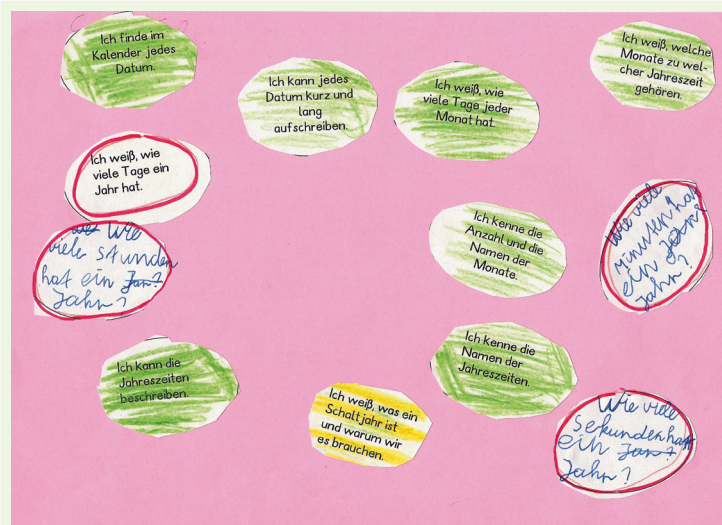 Ich finde im
Kalender jedes
Datum.
Ich kann jedes
Datum kurz und
lang
aufschreiben.
Ich weiß, wie
viele Tage jeder
Monat hat.
Ich weiß, welche
Monate zu wel-
cher Jahreszeit
gehören.
Ich weiß, wie
viele Tage ein
Jahr hat.
Wie
viele stunden
hat ein Jar?
Jahr?
Ich kenne die
Anzahl und die
Namen der
Monate.
Wie viele
minuten hat
ein Jar?
Jahr?
Ich kann die
Jahreszeiten
beschreiben.
Ich weiß, was ein
Schaltjahr ist
und warum wir
es brauchen.
Ich kenne die
Namen der
Jahreszeiten.
Wie viele
Sekunden hat
ein Jar?
Jahr?